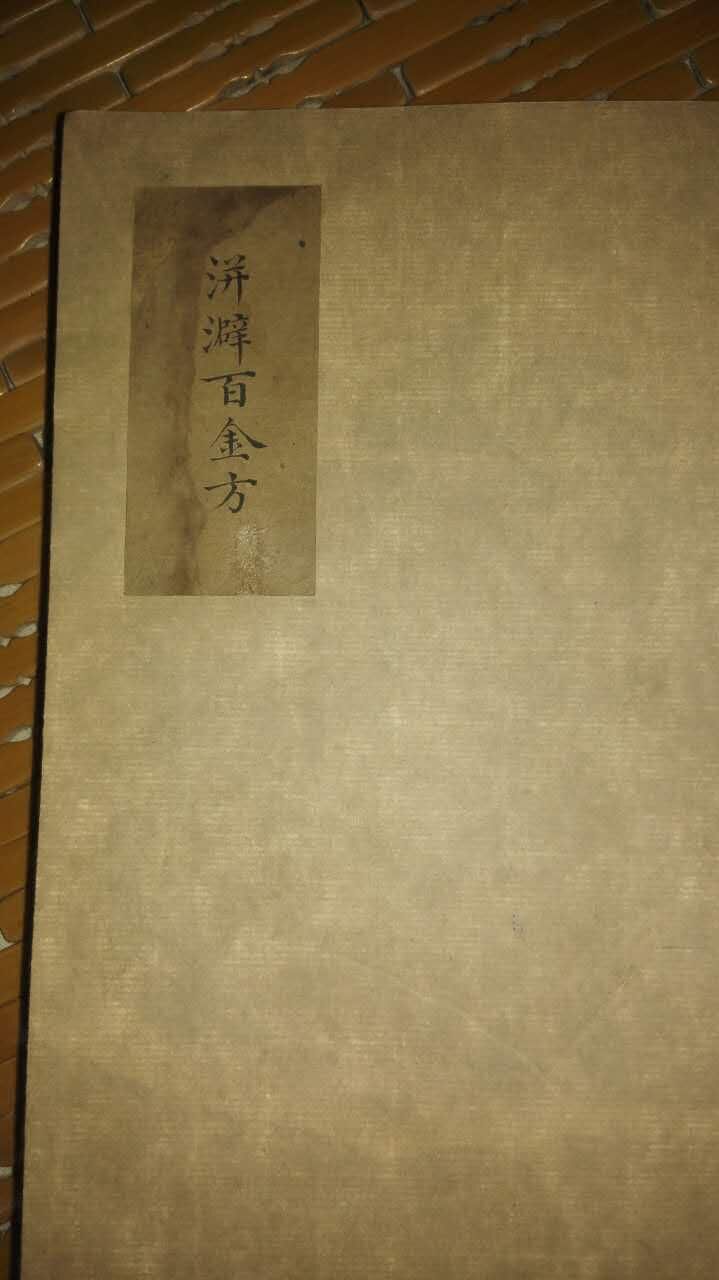 洴澼百金方